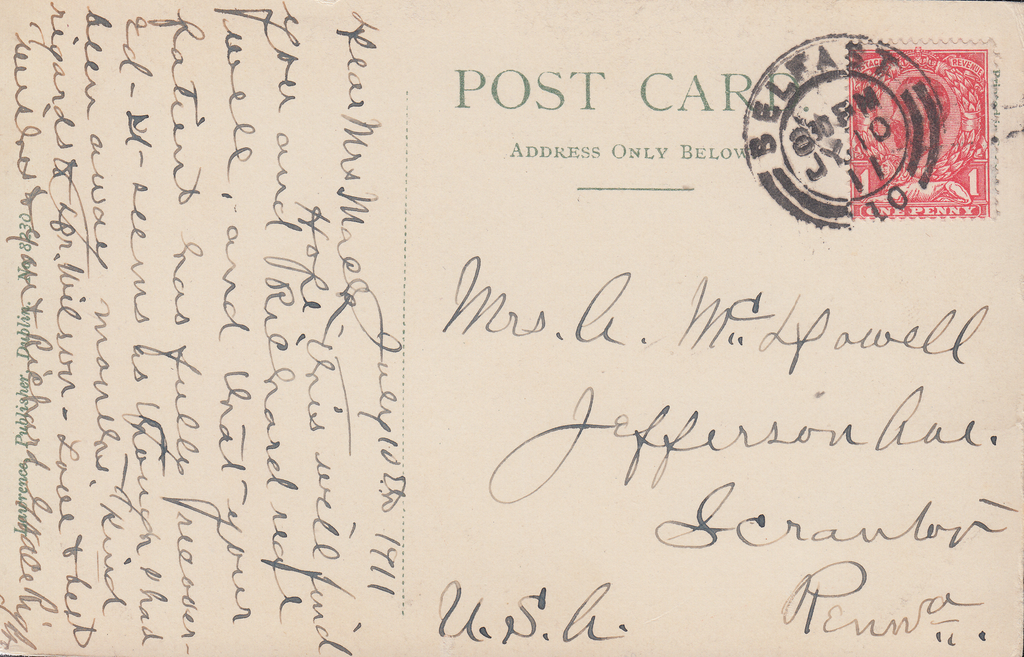 POST CARD
ADDRESS ONLY BELOW
BELFAST
8 30 PM
JY 10
11
10
POSTAGE REVENUE
1 1
ONE PENNY
Mrs. A. McDowell
Jefferson Ave.
Scranton
Penna.
U.S.A.
July 10th 1911
Dear Mrs Mack,
Hope this will find
you and Richard right
well, and that your
patient has fully recover-
ed - It - seems as though I had
been away months. Kind
regards to Mr. Wilson - Love & best
wishes to you & Richard
Lawrence, Publisher, Dublin, No. 8830